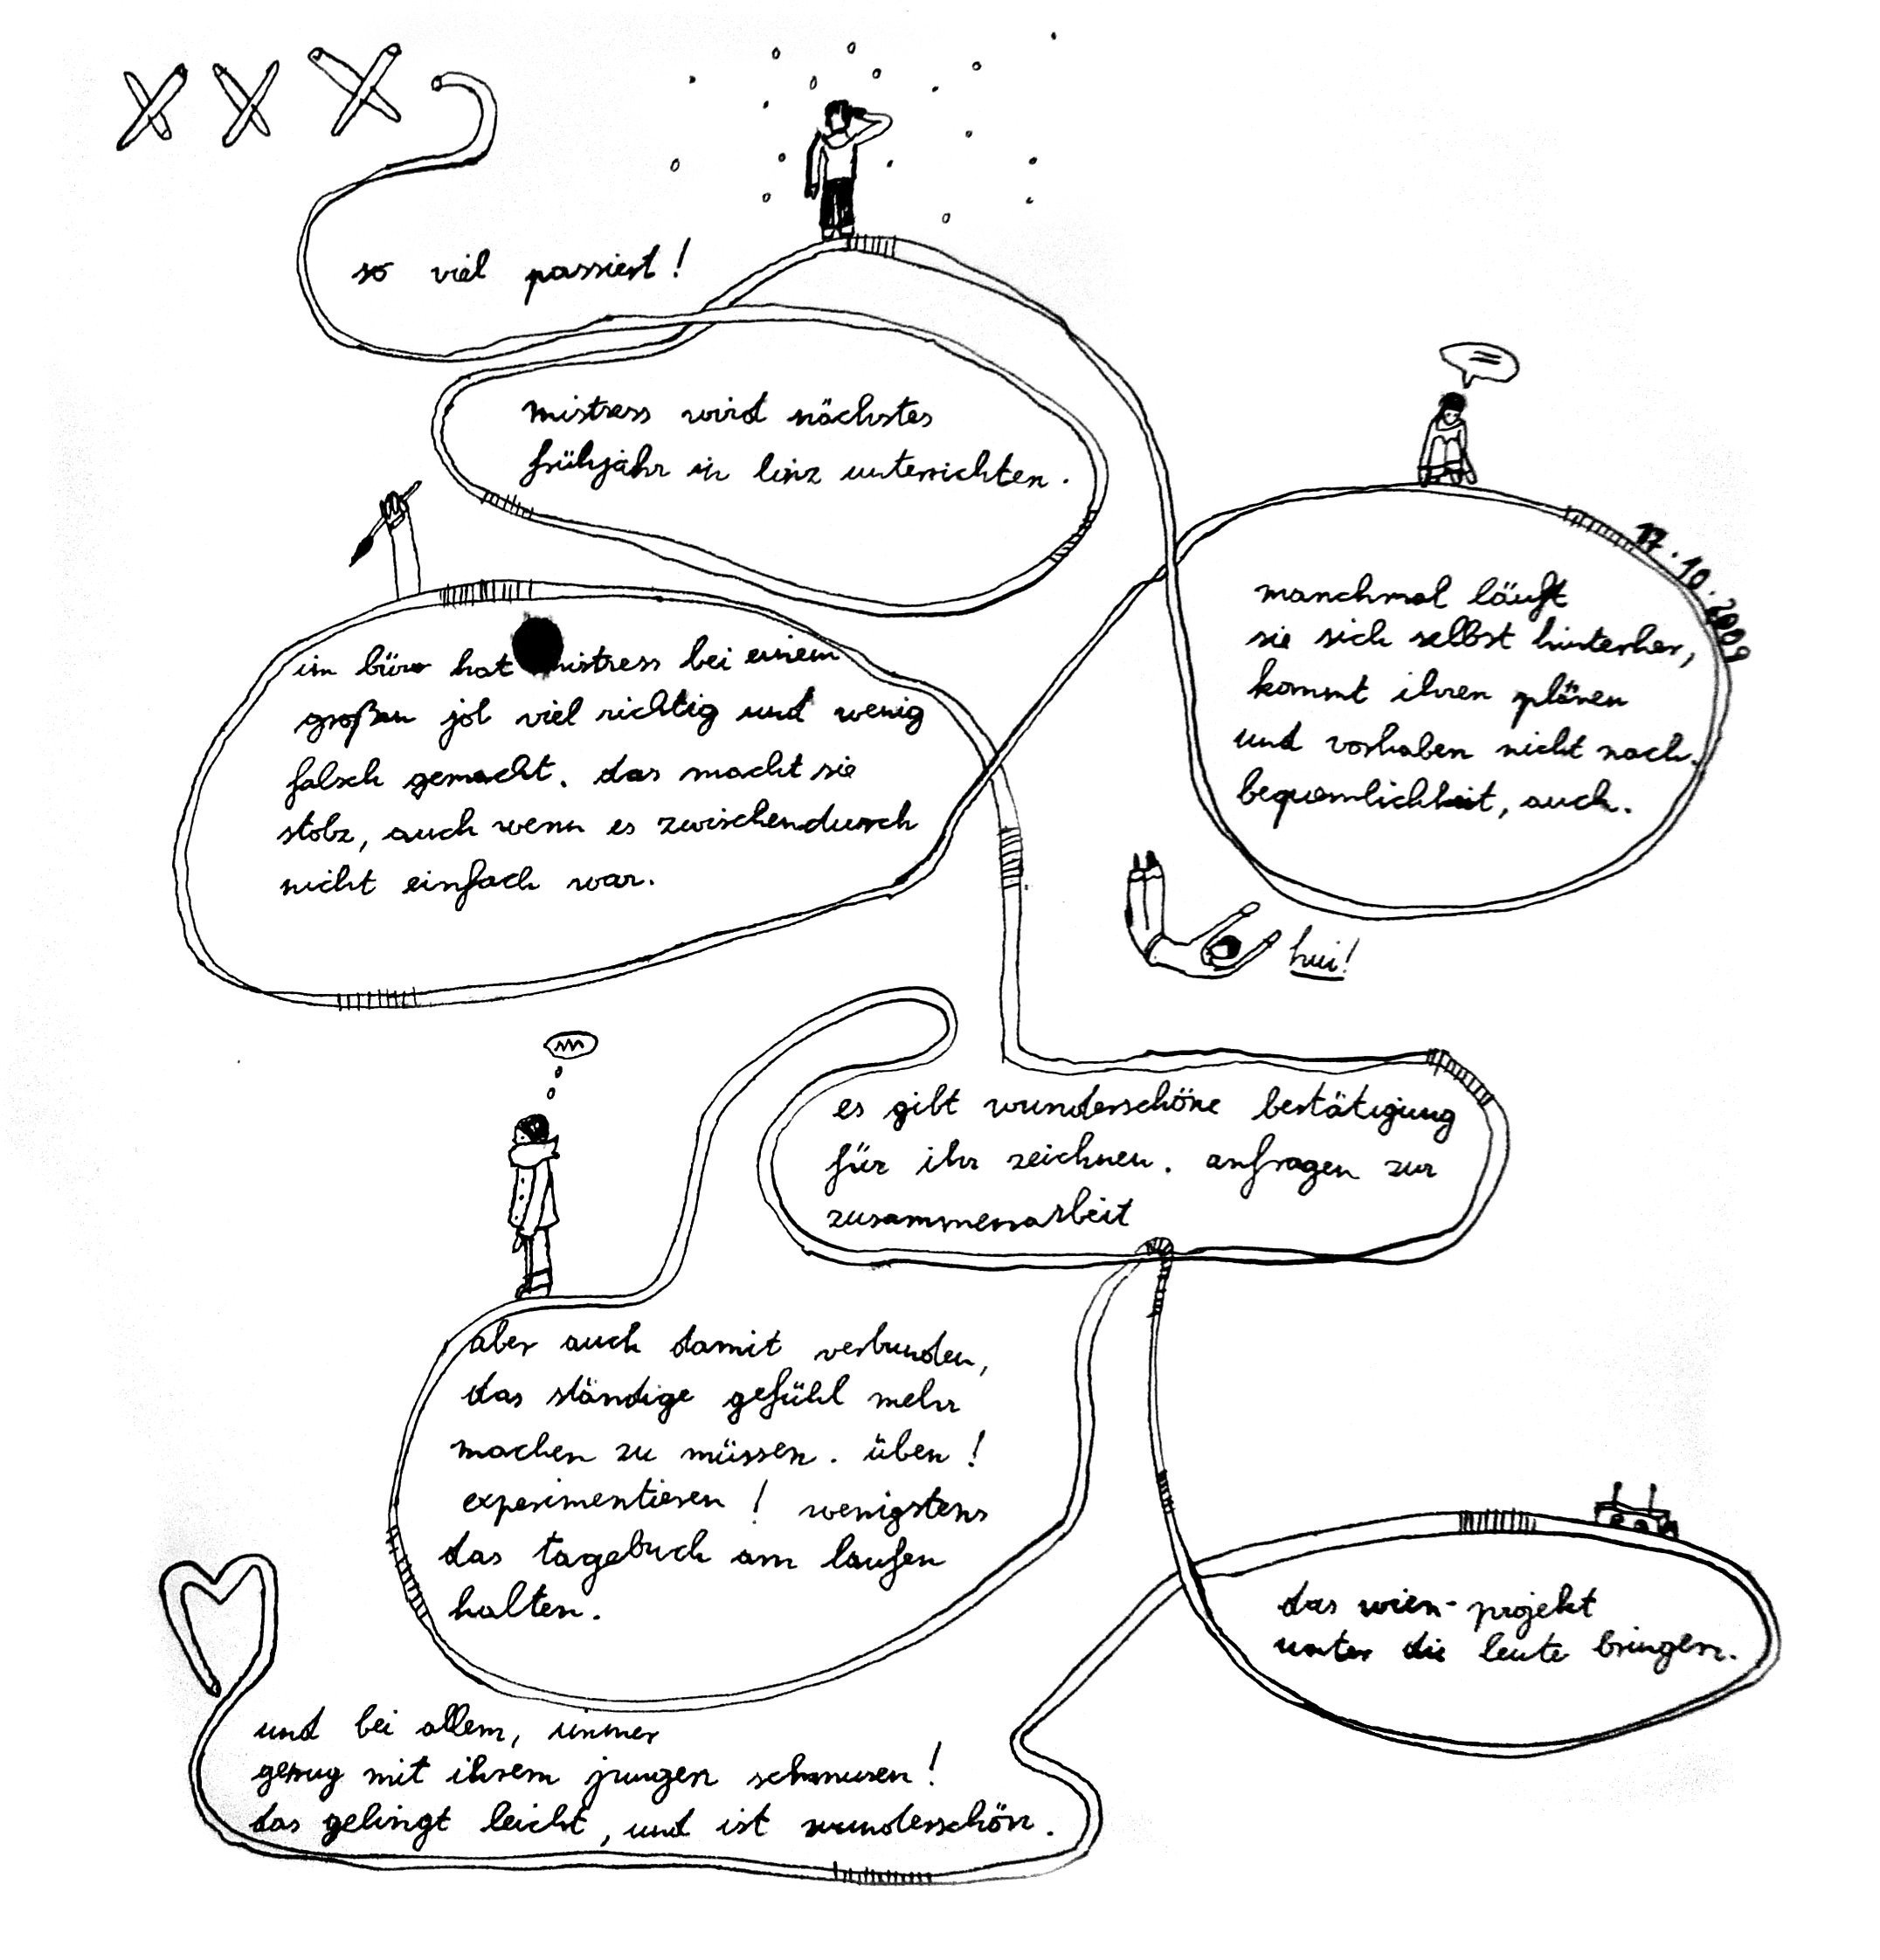 xxx
so viel passiert!
mistress wird nächstes
frühjahr in linz unterrichten.
17.10.2009
manchmal läuft
sie sich selbst hinterher,
kommt ihren plänen
und vorhaben nicht nach.
bequemlichkeit, auch.
im büro hat mistress bei einem
großen job viel richtig und wenig
falsch gemacht. das macht sie
stolz, auch wenn es zwischendurch
nicht einfach war.
hui!
es gibt wunderschöne bestätigung
für ihr zeichnen. anfragen zur
zusammenarbeit
aber auch damit verbunden,
das ständige gefühl mehr
machen zu müssen. üben!
experimentieren! wenigstens
das tagebuch am laufen
halten.
das wien-projekt
unter die leute bringen.
und bei allem, immer
genug mit ihrem jungen schmusen!
das gelingt leicht, und ist wunderschön.